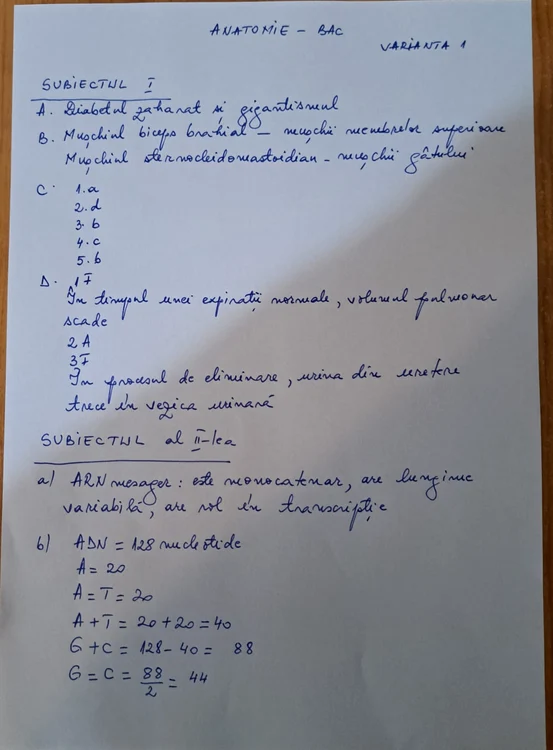 ANATOMIE - BAC
VARIANTA 1
SUBIECTUL I
A. Diabetul zaharat și gigantismul
B. Mușchiul biceps brahial - mușchii membrelor superioare
Mușchiul sternocleidomastoidian - mușchii gâtului
C. 1. a
2. d
3. b
4. c
5. b
D. 1 F
În timpul unei expirații normale, volumul pulmonar
scade
2 A
3 F
În procesul de eliminare, urina din uretere
trece în vezica urinară
SUBIECTUL al II-lea
a) ARN mesager: este monocatenar, are lungime
variabilă, are rol în transcripție
b) ADN = 128 nucleotide
A = 20
A = T = 20
A + T = 20 + 20 = 40
G + C = 128 - 40 = 88
G = C = 88/2 = 44